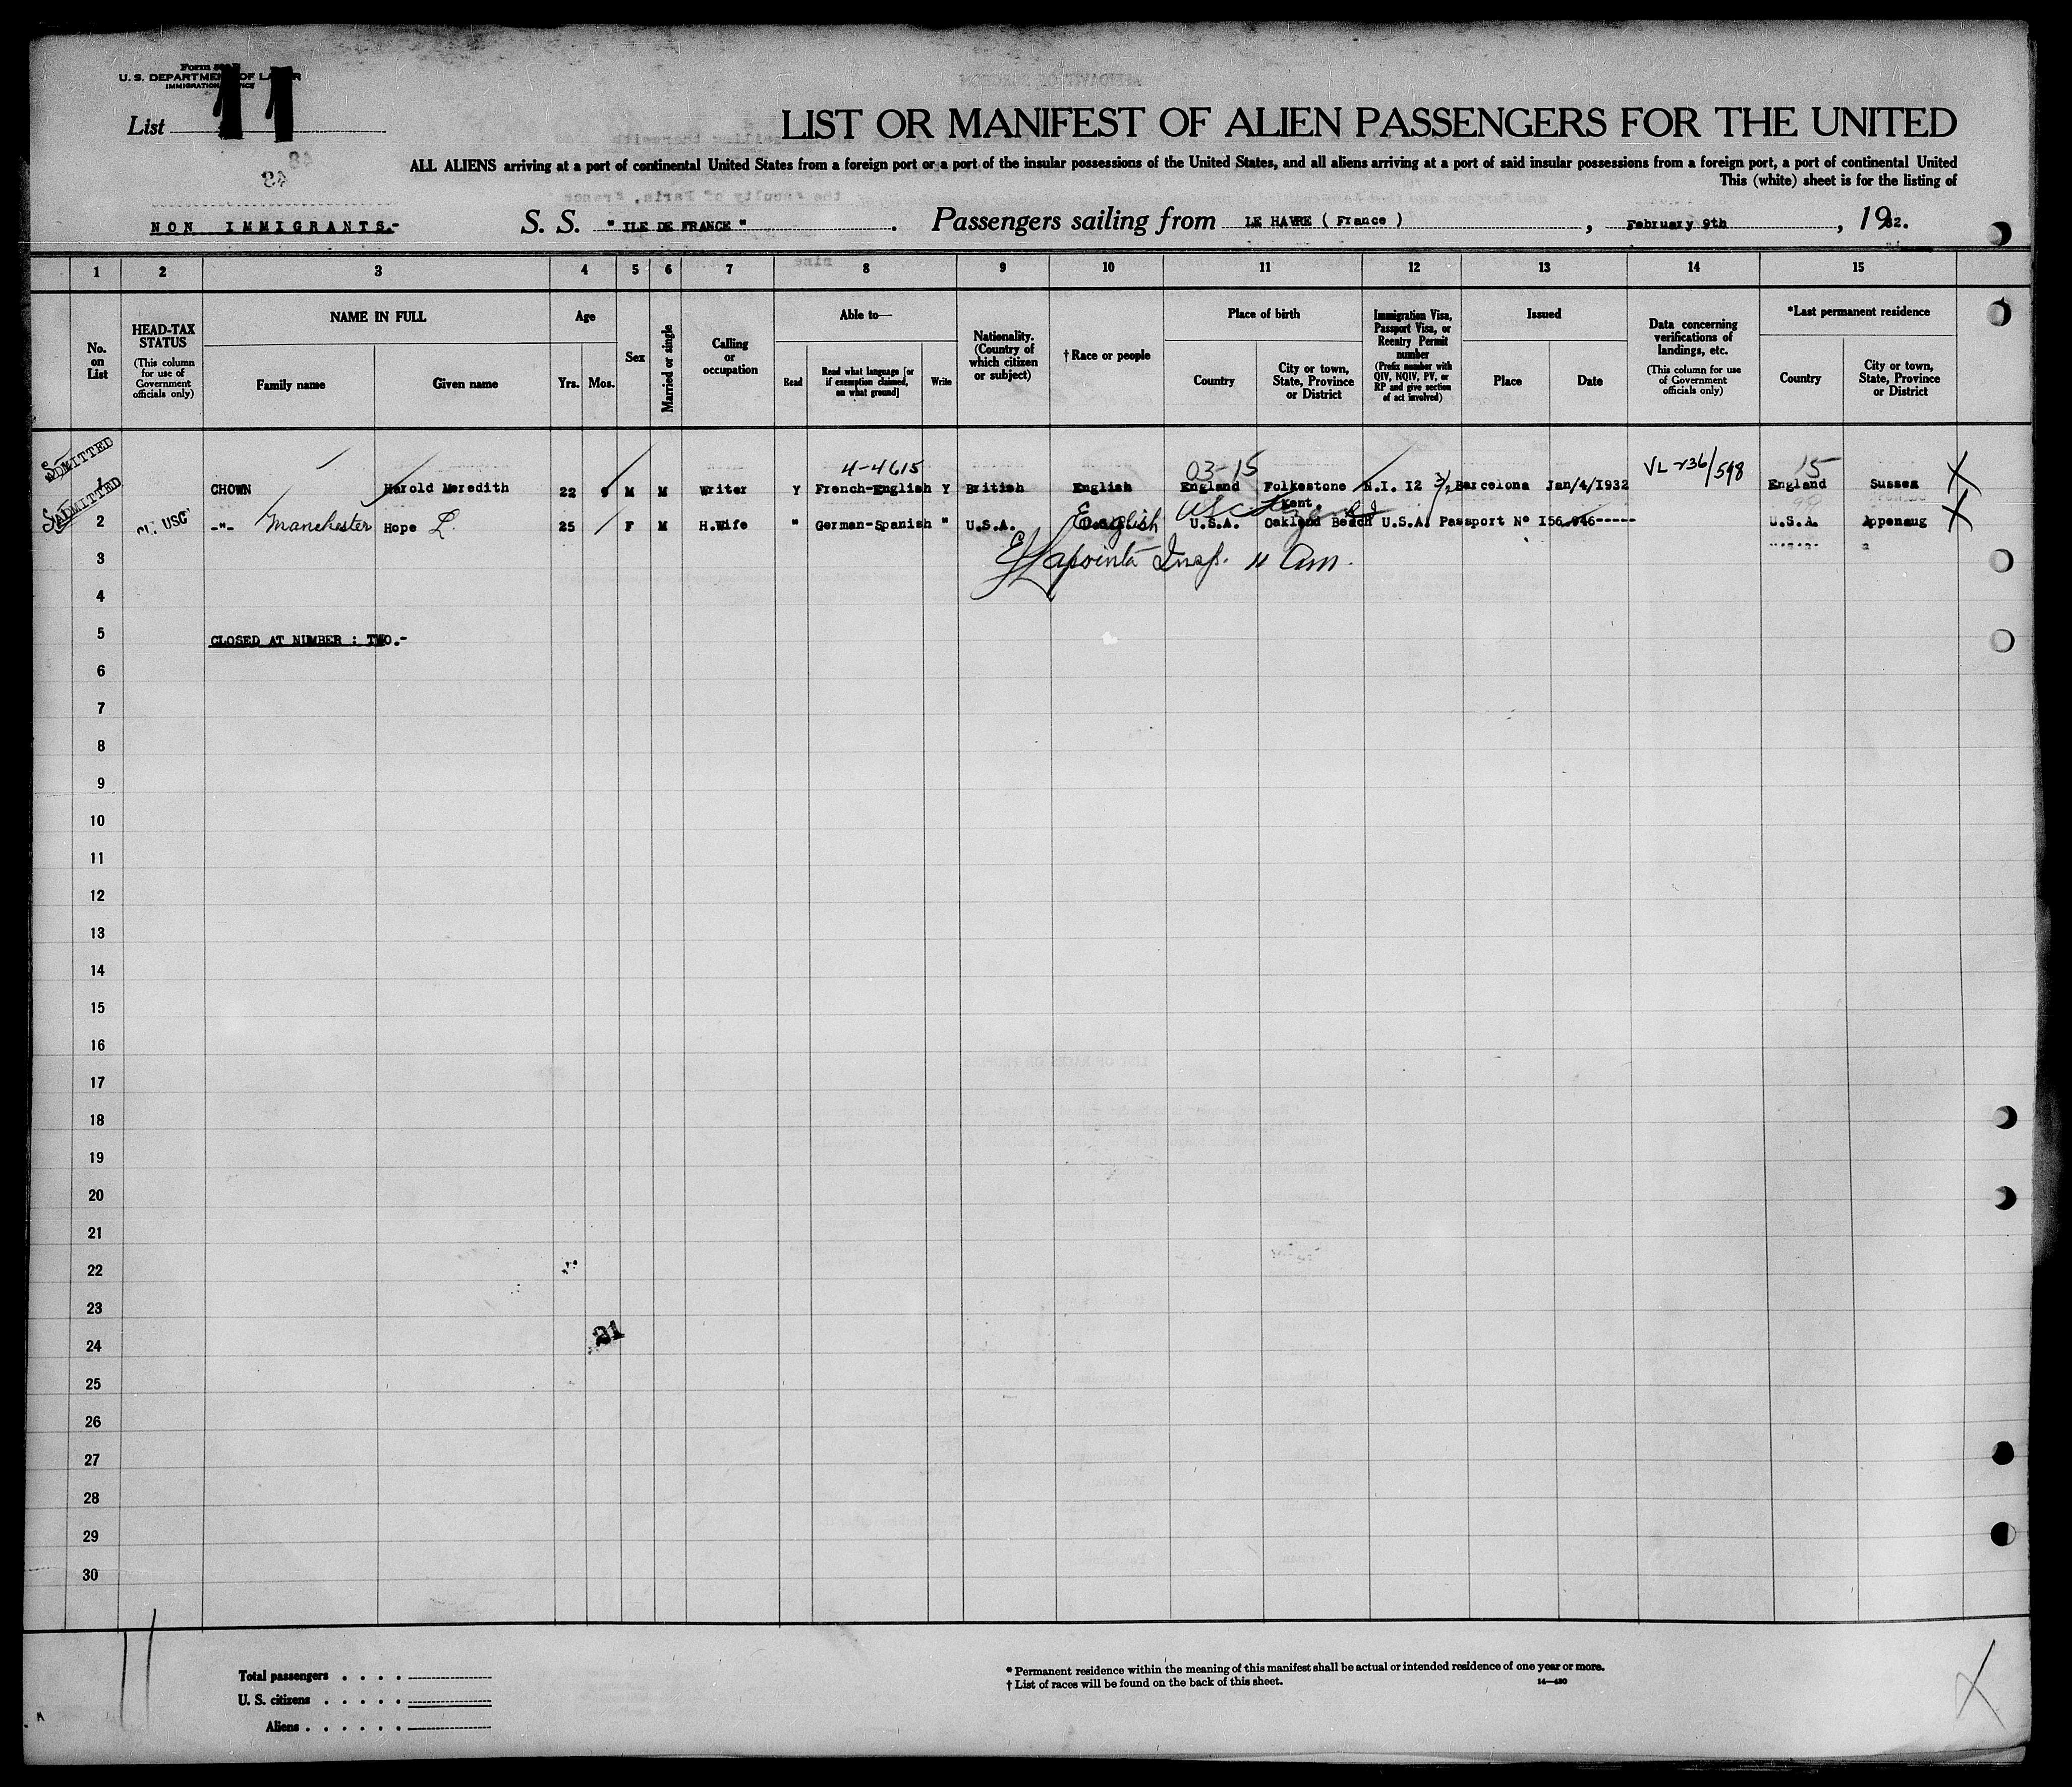 U. S. DEPARTMENT OF LABOR
List 11
LIST OR MANIFEST OF ALIEN PASSENGERS FOR THE UNITED
ALL ALIENS arriving at a port of continental United States from a foreign port or a port of the insular possessions of the United States, and all aliens arriving at a port of said insular possessions from a foreign port, a port of continental United
This (white) sheet is for the listing of
NON IMMIGRANTS.- S. S. " ILE DE FRANCE " . Passengers sailing from LE HAVRE ( France ) , February 9th , 1932.
1 2 3 4 5 6 7 8 9 10 11 12 13 14 15
No. on List
HEAD-TAX STATUS (This column for use of Government officials only)
NAME IN FULL Family name Given name
Age Yrs. Mos.
Sex
Married or single
Calling or occupation
Able to— Read Read what language [or if exemption claimed, on what ground] Write
Nationality. (Country of which citizen or subject)
†Race or people
Place of birth Country City or town, State, Province or District
Immigration Visa, Passport Visa, or Reentry Permit number (Prefix number with QIV, NQIV, PV, or RP and give section of act involved)
Issued Place Date
Data concerning verifications of landings, etc. (This column for use of Government officials only)
*Last permanent residence Country City or town, State, Province or District
ADMITTED 4-4615 03-15 VL 236/598 15
1 CHOWN Harold Meredith 22 9 M M Writer Y French-English Y British English England Folkestone N.I. I2 3/2 Barcelona Jan/4/1932 England Sussex X
Kent.
ADMITTED USC
2 -"- Manchester Hope L. 25 F M H.Wife " German-Spanish " U.S.A. English U.S.A. Oakland Beach U.S.A. Passport Nº I56.946----- U.S.A. Appenaug X
3 Lapointe Insp. " Am.
4
5 CLOSED AT NUMBER : TWO.-
6
7
8
9
10
11
12
13
14
15
16
17
18
19
20
21
22
23
21
24
25
26
27
28
29
30
11
Total passengers . . . .
U. S. citizens . . . . .
Aliens . . . . . .
* Permanent residence within the meaning of this manifest shall be actual or intended residence of one year or more.
† List of races will be found on the back of this sheet. 14—430
X